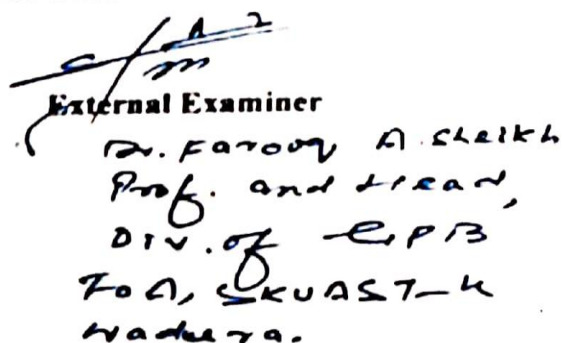 External Examiner
Dr. Farooq A. Sheikh
Prof. and Head,
Div. of GPB
FoA, SKUAST-K
Wadura.